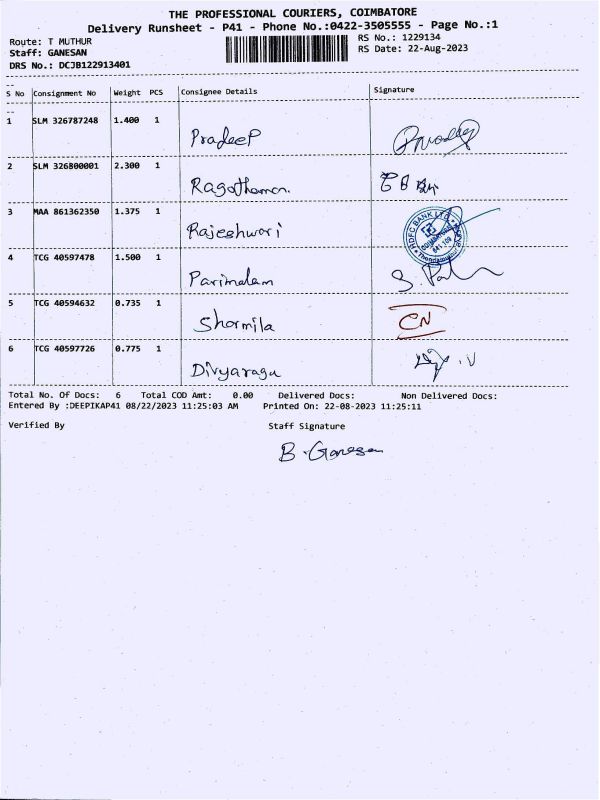 THE PROFESSIONAL COURIERS, COIMBATORE
Delivery Runsheet - P41 - Phone No.:0422-3505555 - Page No.:1
Route: T MUTHUR RS No.: 1229134
Staff: GANESAN RS Date: 22-Aug-2023
DRS No.: DCJB122913401
S No Consignment No Weight PCS Consignee Details Signature
1 SLM 326787248 1.400 1 Pradeep
2 SLM 326800001 2.300 1 Ragothaman.
3 MAA 861362350 1.375 1 Rajeshwari
HDFC BANK LTD
COIMBATORE
641 109
4 TCG 40597478 1.500 1 Parimalam
5 TCG 40594632 0.735 1 Sharmila CN
6 TCG 40597726 0.775 1 Divyaragu
Total No. Of Docs: 6 Total COD Amt: 0.00 Delivered Docs: Non Delivered Docs:
Entered By :DEEPIKAP41 08/22/2023 11:25:03 AM Printed On: 22-08-2023 11:25:11
Verified By Staff Signature
B. Ganesan